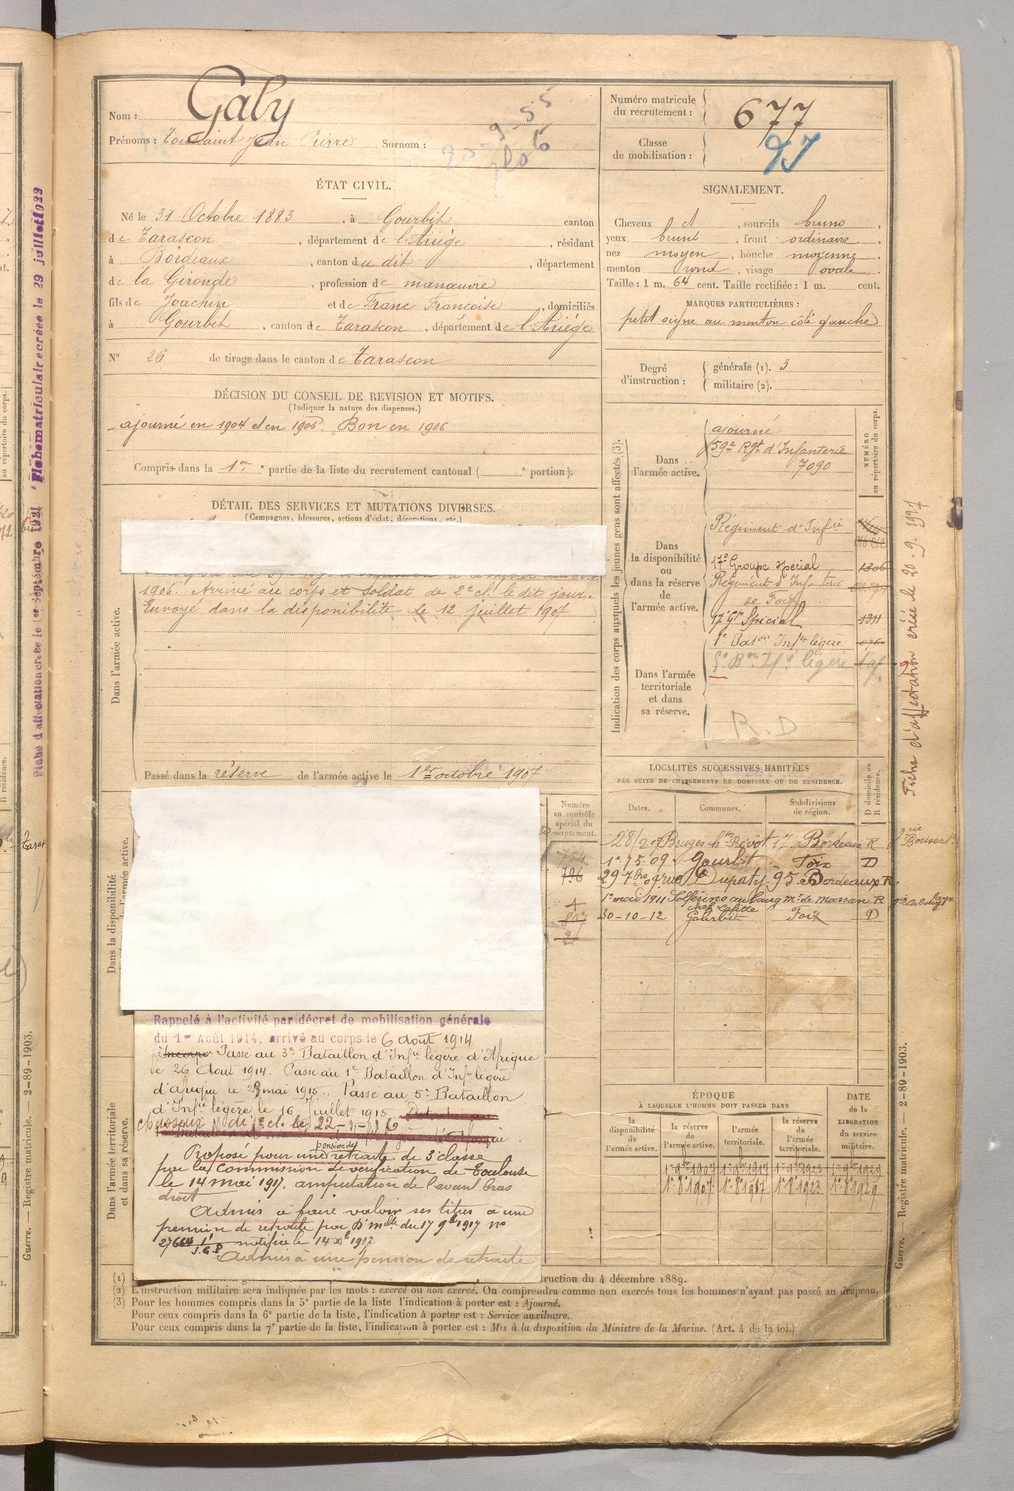 Nom : Galy
Prénoms : Toussaint Jean Pierre Surnom :
ÉTAT CIVIL.
Né le 31 Octobre 1883, à Gourbit canton
de Tarascon, département de l'Ariège, résidant
à Bordeaux, canton du dit, département
de la Gironde, profession de manœuvre
fils de Joachin et de Franc Francoise, domiciliés
à Gourbit, canton de Tarascon, département de l'Ariége
N° 26 de tirage dans le canton de Tarascon
DÉCISION DU CONSEIL DE REVISION ET MOTIFS.
(Indiquer la nature des dispenses.)
ajourné en 1904 et en 1905. Bon en 1906
Compris dans la 1re partie de la liste du recrutement cantonal ( portion).
DÉTAIL DES SERVICES ET MUTATIONS DIVERSES.
(Campagnes, blessures, actions d'éclat, décorations, etc.)
Dans l'armée active.
1906. Arrivé au corps et soldat de 2e cl. le dit jour.
Envoyé dans la disponibilité le 12 Juillet 1907
Passé dans la réserve de l'armée active le 1er octobre 1907
Dans la disponibilité
de l'armée active.
Rappelé à l'activité par décret de mobilisation générale
du 1er Août 1914, arrivé au corps le 6 août 1914
Incorpo Passé au 3e Bataillon d'Infie légère d'Afrique
le 26 Aout 1914. Passé au 1e Bataillon d'Infie légère
d'afrique le mai 1915. Passé au 5e Bataillon
d'Infie légère le 16 Juillet 1915
chasseur de 1e cl. le 22
Proposé pour une pension de retraite de 3e classe
par la Commission de vérification de Toulouse
le 14 mai 1917. amputation de l'avant bras
droit
Admis à faire valoir ses titres à une
pension de retraite par D. mlle du 17 9bre 1917 no
notifiée le 14 Xe 1917.
Admis à une pension de retraite
Dans l'armée territoriale
et dans sa réserve.
Numéro matricule
du recrutement : 677
Classe
de mobilisation :
SIGNALEMENT.
Cheveux et, sourcils bruns,
yeux bruns, front ordinaire,
nez moyen, bouche moyenne,
menton rond, visage ovale.
Taille : 1 m. 64 cent. Taille rectifiée : 1 m. cent.
MARQUES PARTICULIÈRES :
petit signe au menton côté gauche
Degré
d'instruction :
générale (1). 3
militaire (2).
Indication des corps auxquels les jeunes gens sont affectés (3).
NUMÉRO
au répertoire du corps.
Dans
l'armée active.
ajourné
59e Rgt d'Infanterie
7090
Dans
la disponibilité
ou
dans la réserve
de
l'armée active.
Régiment d'Infie
17e Groupe spécial 1306
Régiment d'Infanterie
de Foix
17 Gr Spécial 1311
1e Baton Infie légère
Dans l'armée
territoriale
et dans
sa réserve.
5e Bon If légère
R.D
LOCALITÉS SUCCESSIVES HABITÉES
PAR SUITE DE CHANGEMENTS DE DOMICILE OU DE RÉSIDENCE.
D domicile ou
R résidence.
Numéro
au contrôle
spécial du
recrutement.
Dates. Communes. Subdivisions
de région.
796
1-75-09 Gourbit Foix D
Dupaty 95 Bordeaux R.
1er mai 1911 Solférino au bourg mt de marsan R
30-10-12 Gourbit Foix D
ÉPOQUE
À LAQUELLE L'HOMME DOIT PASSER DANS
la
disponibilité
de
l'armée active.
la réserve
de
l'armée active.
l'armée
territoriale.
la réserve
de
l'armée
territoriale.
DATE
de la
LIBÉRATION
du service
militaire.
(2) L'instruction militaire sera indiquée par les mots : exercé ou non exercé. On comprendra comme non exercés tous les hommes n'ayant pas passé au drapeau.
(3) Pour les hommes compris dans la 5e partie de la liste l'indication à porter est : Ajourné.
Pour ceux compris dans la 6e partie de la liste, l'indication à porter est : Service auxiliaire.
Pour ceux compris dans la 7e partie de la liste, l'indication à porter est : Mis à la disposition du Ministre de la Marine. (Art. 4 de la loi.)
Guerre. — Registre matricule. — 2-89-1903.
Fiche d'affectation créée le 20.9.1927
Guerre. — Registre matricule. — 2-89-1903.